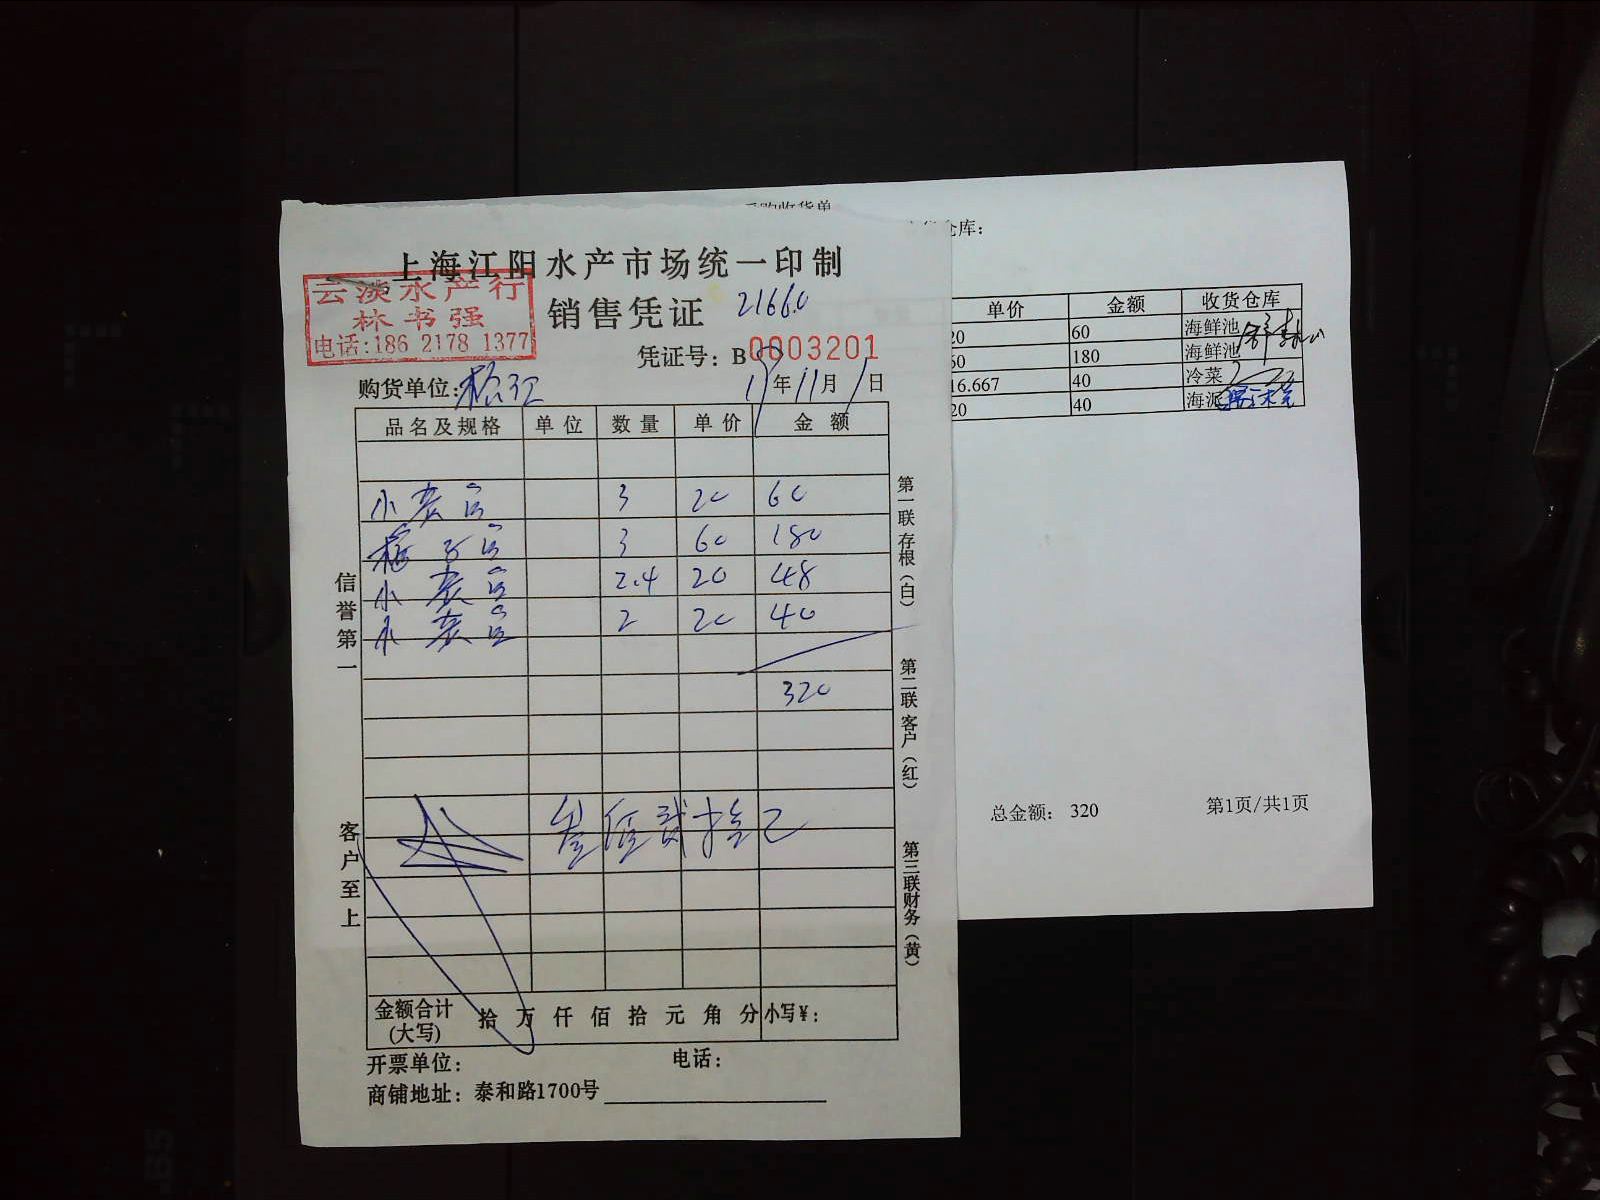 上海江阳水产市场统一印制
云淡水产行
林书强
电话:186 2178 1377
销售凭证
21660
凭证号: B 0003201
购货单位: 松江
年11月1日
品名及规格 单位 数量 单价 金额
3 20 60
3 60 180
2.4 20 48
2 20 40
320
叁佰贰拾
金额合计(大写) 拾 万 仟 佰 拾 元 角 分 小写¥:
开票单位: 电话:
商铺地址: 泰和路1700号
信誉第一
客户至上
第一联存根(白)
第二联客户(红)
第三联财务(黄)
采购收货单
仓库:
单价 金额 收货仓库
20 60 海鲜池
60 180 海鲜池
16.667 40 冷菜
20 40 海派
总金额: 320
第1页/共1页